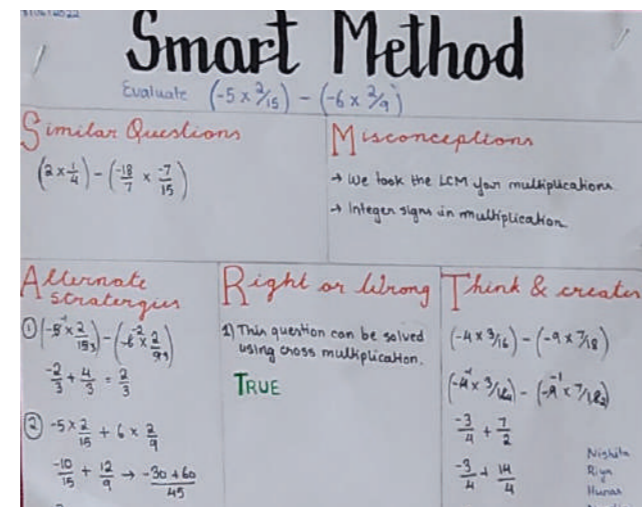 Smart Method
Evaluate (-5 × 2/15) - (-6 × 2/9)
Similar Questions
(2 × 1/4) - (-18/7 × -7/15)
Misconceptions
→ We took the LCM for multiplications.
→ Integer signs in multiplication.
Alternate
stratergies
① (-5 -1 × 2/15 3) - (-6 -2 × 2/9 3)
-2/3 + 4/3 = 2/3
② -5 × 2/15 + 6 × 2/9
-10/15 + 12/9 → -30 + 60/45
Right or Wrong
1) This question can be solved
using cross multiplication.
TRUE
Think & create
(-4 × 3/16) - (-9 × 7/18)
(-4 -1 × 3/16 4) - (-9 -1 × 7/18 2)
-3/4 + 7/2
-3/4 + 14/4
Nishita
Riya
Hunar